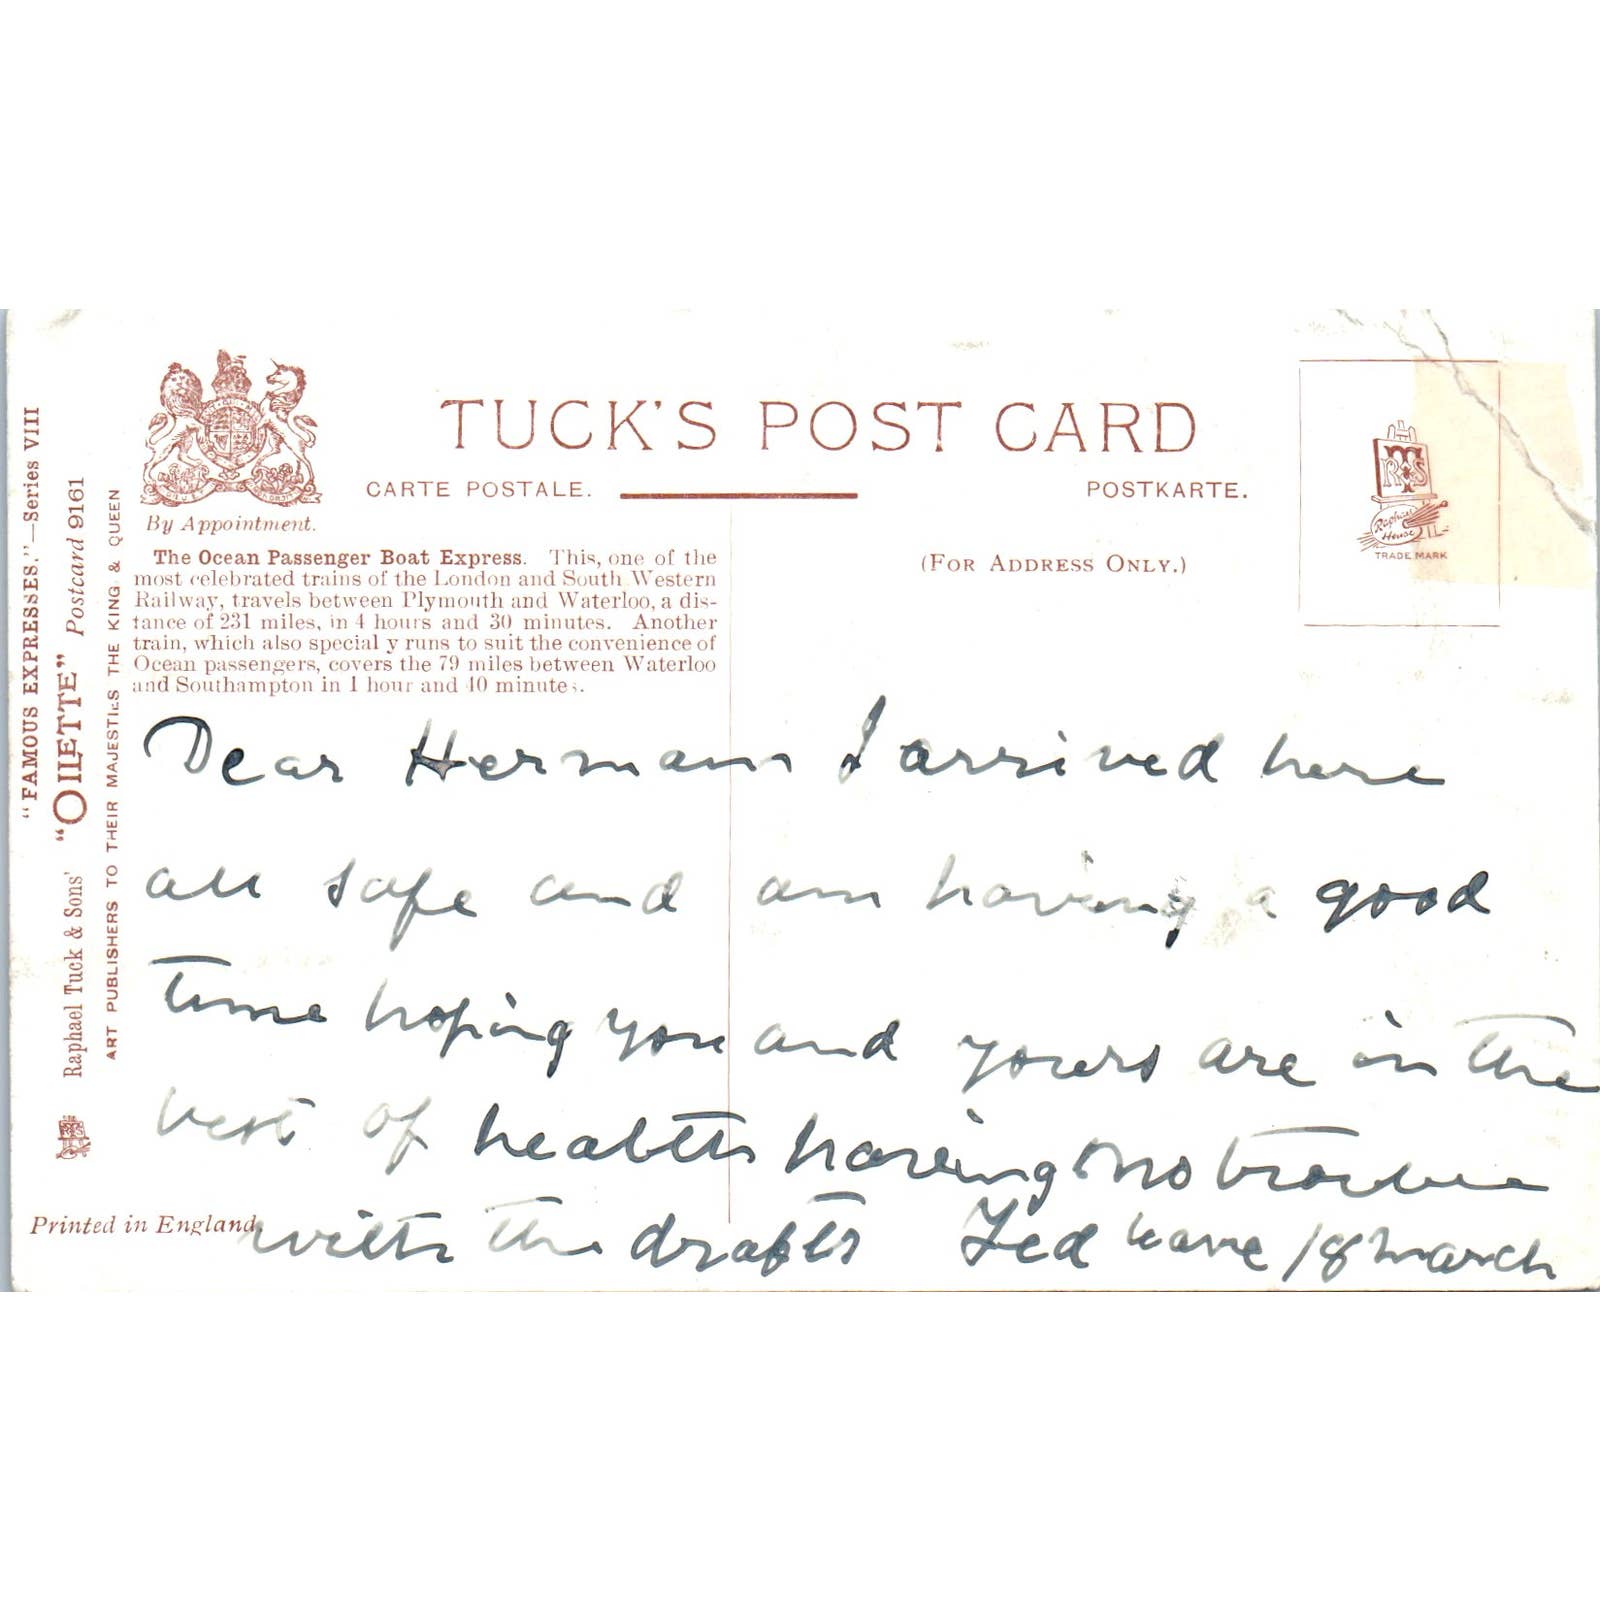 "FAMOUS EXPRESSES."—Series VIII
Raphael Tuck & Sons' "OILETTE" Postcard 9161
ART PUBLISHERS TO THEIR MAJESTIES THE KING & QUEEN
By Appointment.
TUCK'S POST CARD
CARTE POSTALE.
POSTKARTE.
The Ocean Passenger Boat Express. This, one of the
most celebrated trains of the London and South Western
Railway, travels between Plymouth and Waterloo, a dis-
tance of 231 miles, in 4 hours and 30 minutes. Another
train, which also special y runs to suit the convenience of
Ocean passengers, covers the 79 miles between Waterloo
and Southampton in 1 hour and 40 minutes.
(FOR ADDRESS ONLY.)
RTS
Raphael
House
TRADE MARK
Dear Herman I arrived here
all safe and am having a good
time hoping you and yours are in the
best of health having no trouble
with the drafts Ted leave 18 march
Printed in England.